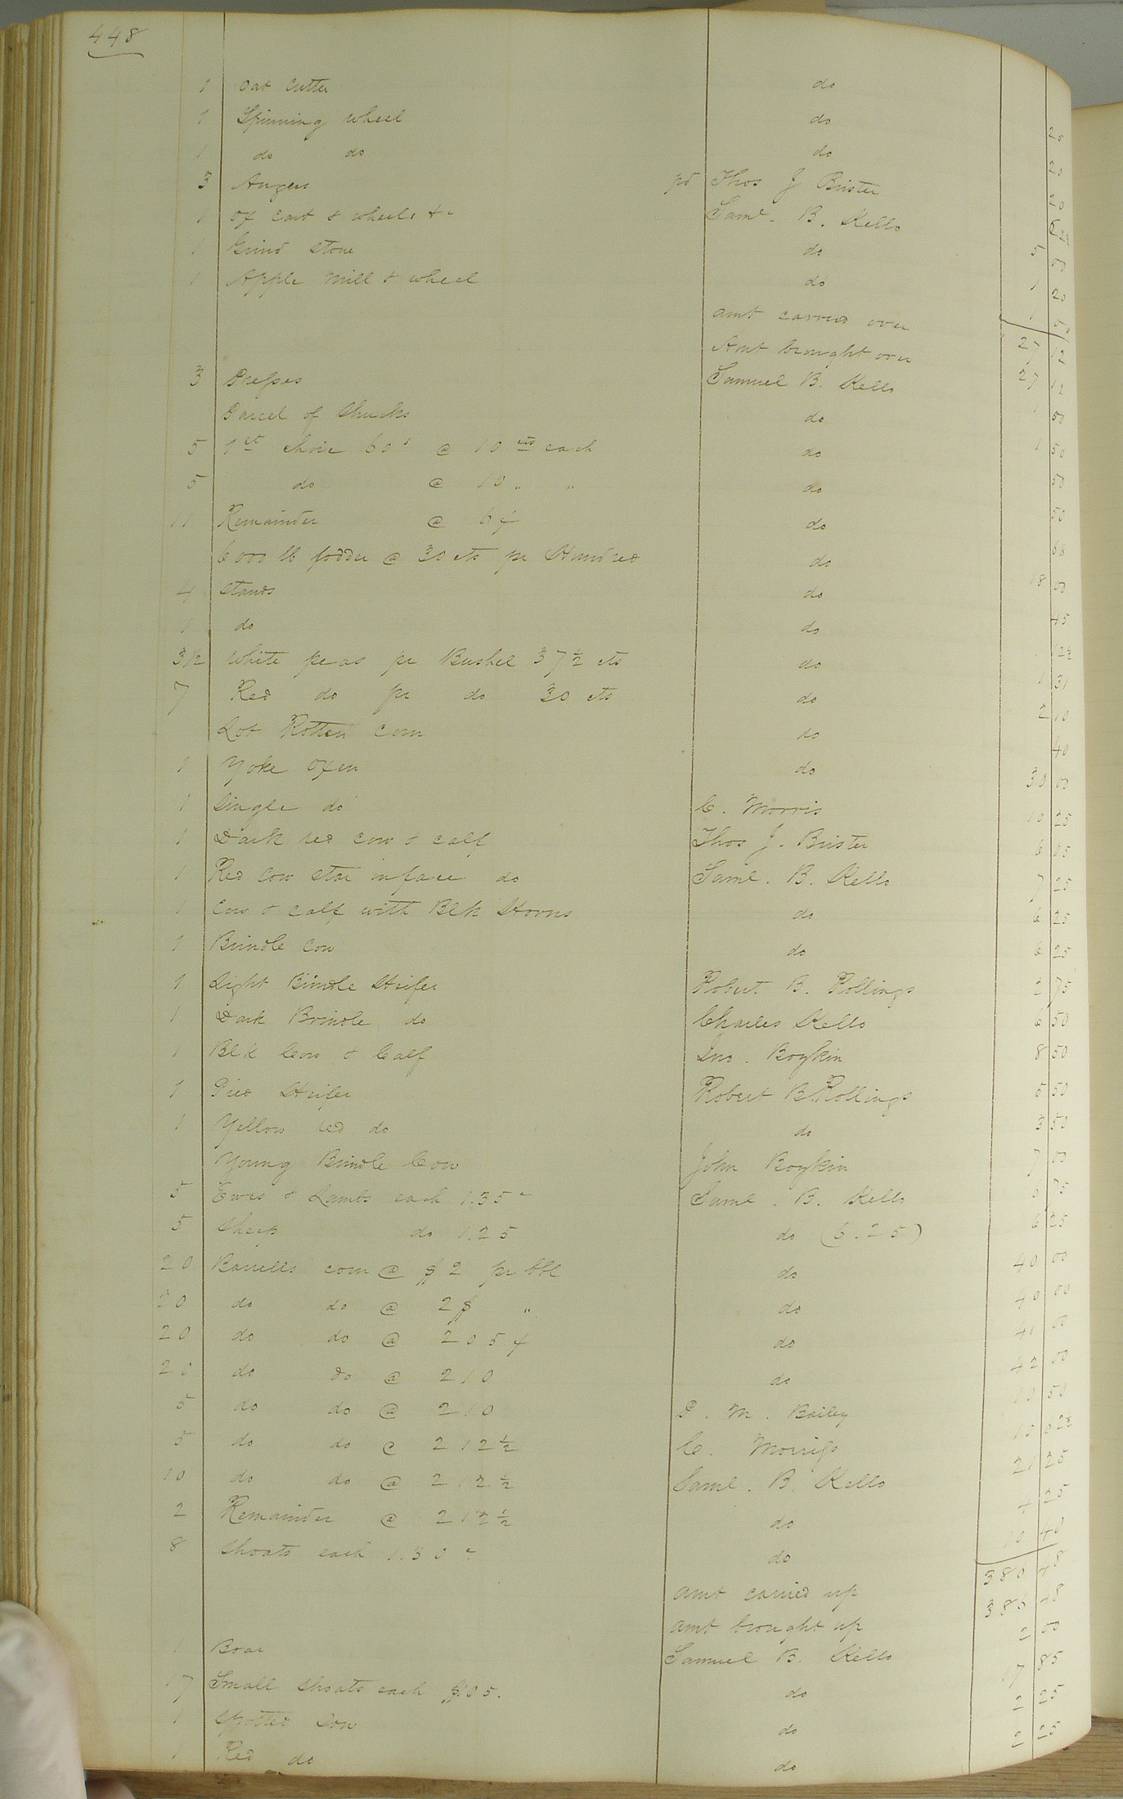 448
1 Oat Cutter do 20
1 Spinning wheel do 20
1 do do do 20
3 Augers pd Thos J Brister 62½
1 Ox Cart & wheels &c Saml. B. Kello 5 00
1 Grind Stone do 1 20
1 Apple Mill & wheel do 1 00
amt carried over 27 12
Amt brought over 27 12
3 Presses Samuel B. Kello 1 50
Parcel of Shucks do 1 50
5 1st Choice 60s @ 10 cts each do 50
5 do @ 10 " " do 50
11 Remainder @ 6¢ do 66
6000 lb fodder @ 30 cts pr Hundred do 18 00
4 Stands do 45
1 do do 12½
3½ White peas pr Bushel 37½ cts do 1 31
7 Red do pr do 30 cts do 2 10
Lot Rotten Corn do 40
1 Yoke Oxen do 30 00
1 Single do C. Morris 10 25
1 Dark red Cow & calf Thos J. Brister 6
1 Red Cow Star in face do Saml. B. Kello 7 25
1 Cow & calf with Blk Horns do 6 25
1 Brindle Cow do 6 25
1 Light Brindle Heifer Robert B. Rollings 2 75
1 Dark Brindle do Charles Kello 6 50
1 Blk Cow & Calf Jno. Boykin 8 50
1 Pied Heifer Robert B. Rollings 5 50
1 Yellow red do do 3 50
Young Brindle Cow John Boykin 7 00
5 Ewes & Lambs each 1.35c Saml. B. Kello 6 75
5 Sheep do 1.25 do (6.25) 6 25
20 Barrells corn @ $2 pr bbl do 40 00
20 do do @ 2$ " do 40 00
20 do do @ 205¢ do 41 00
20 do do @ 210 do 42 00
5 do do @ 210 D. M. Bailey 10 50
5 do do @ 212½ C. Morriss 10 62½
10 do do @ 212½ Saml. B. Kello 21 25
2 Remainder @ 212½ do 4 25
8 Shoats each 1.30c do 10 40
amt carried up 380 48
amt brought up 380 48
1 Boar Samuel B. Kello 2 00
17 Small Shoats each $1.05. do 17 85
1 Spotted Sow do 2 25
1 Red do do 2 25